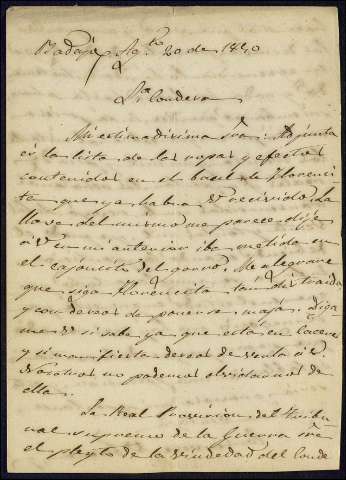 Badajoz Ag.to 20 de 1840
Sra Condesa
Mi estimadisima Sra: Adjunta
es la lista de las ropas y efectos
contenidos en el baul de Florenci
ta que ya habra V. recivido. La
llave del mismo me parece dije
a V. en mi anterior iba metida en
el cajoncito del gorro. Me alegrare
que siga Florencita tan distraida
y con deseos de ponerse maja. Diga
me V. si sabe ya que está en Caceres
y si manifiesta deseos de verla a V.
Nosotros no podemos olvidarnos de
ella.
La Real Provision del Tribu
nal Supremo de la Guerra sre
el pleyto de la viudedad del Conde